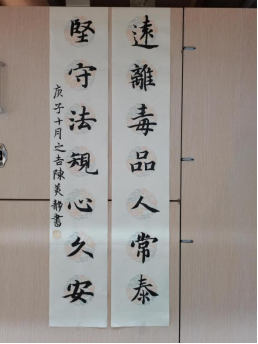 遠離毒品人常泰
堅守法規心久安
庚子十月之吉陳美靜書